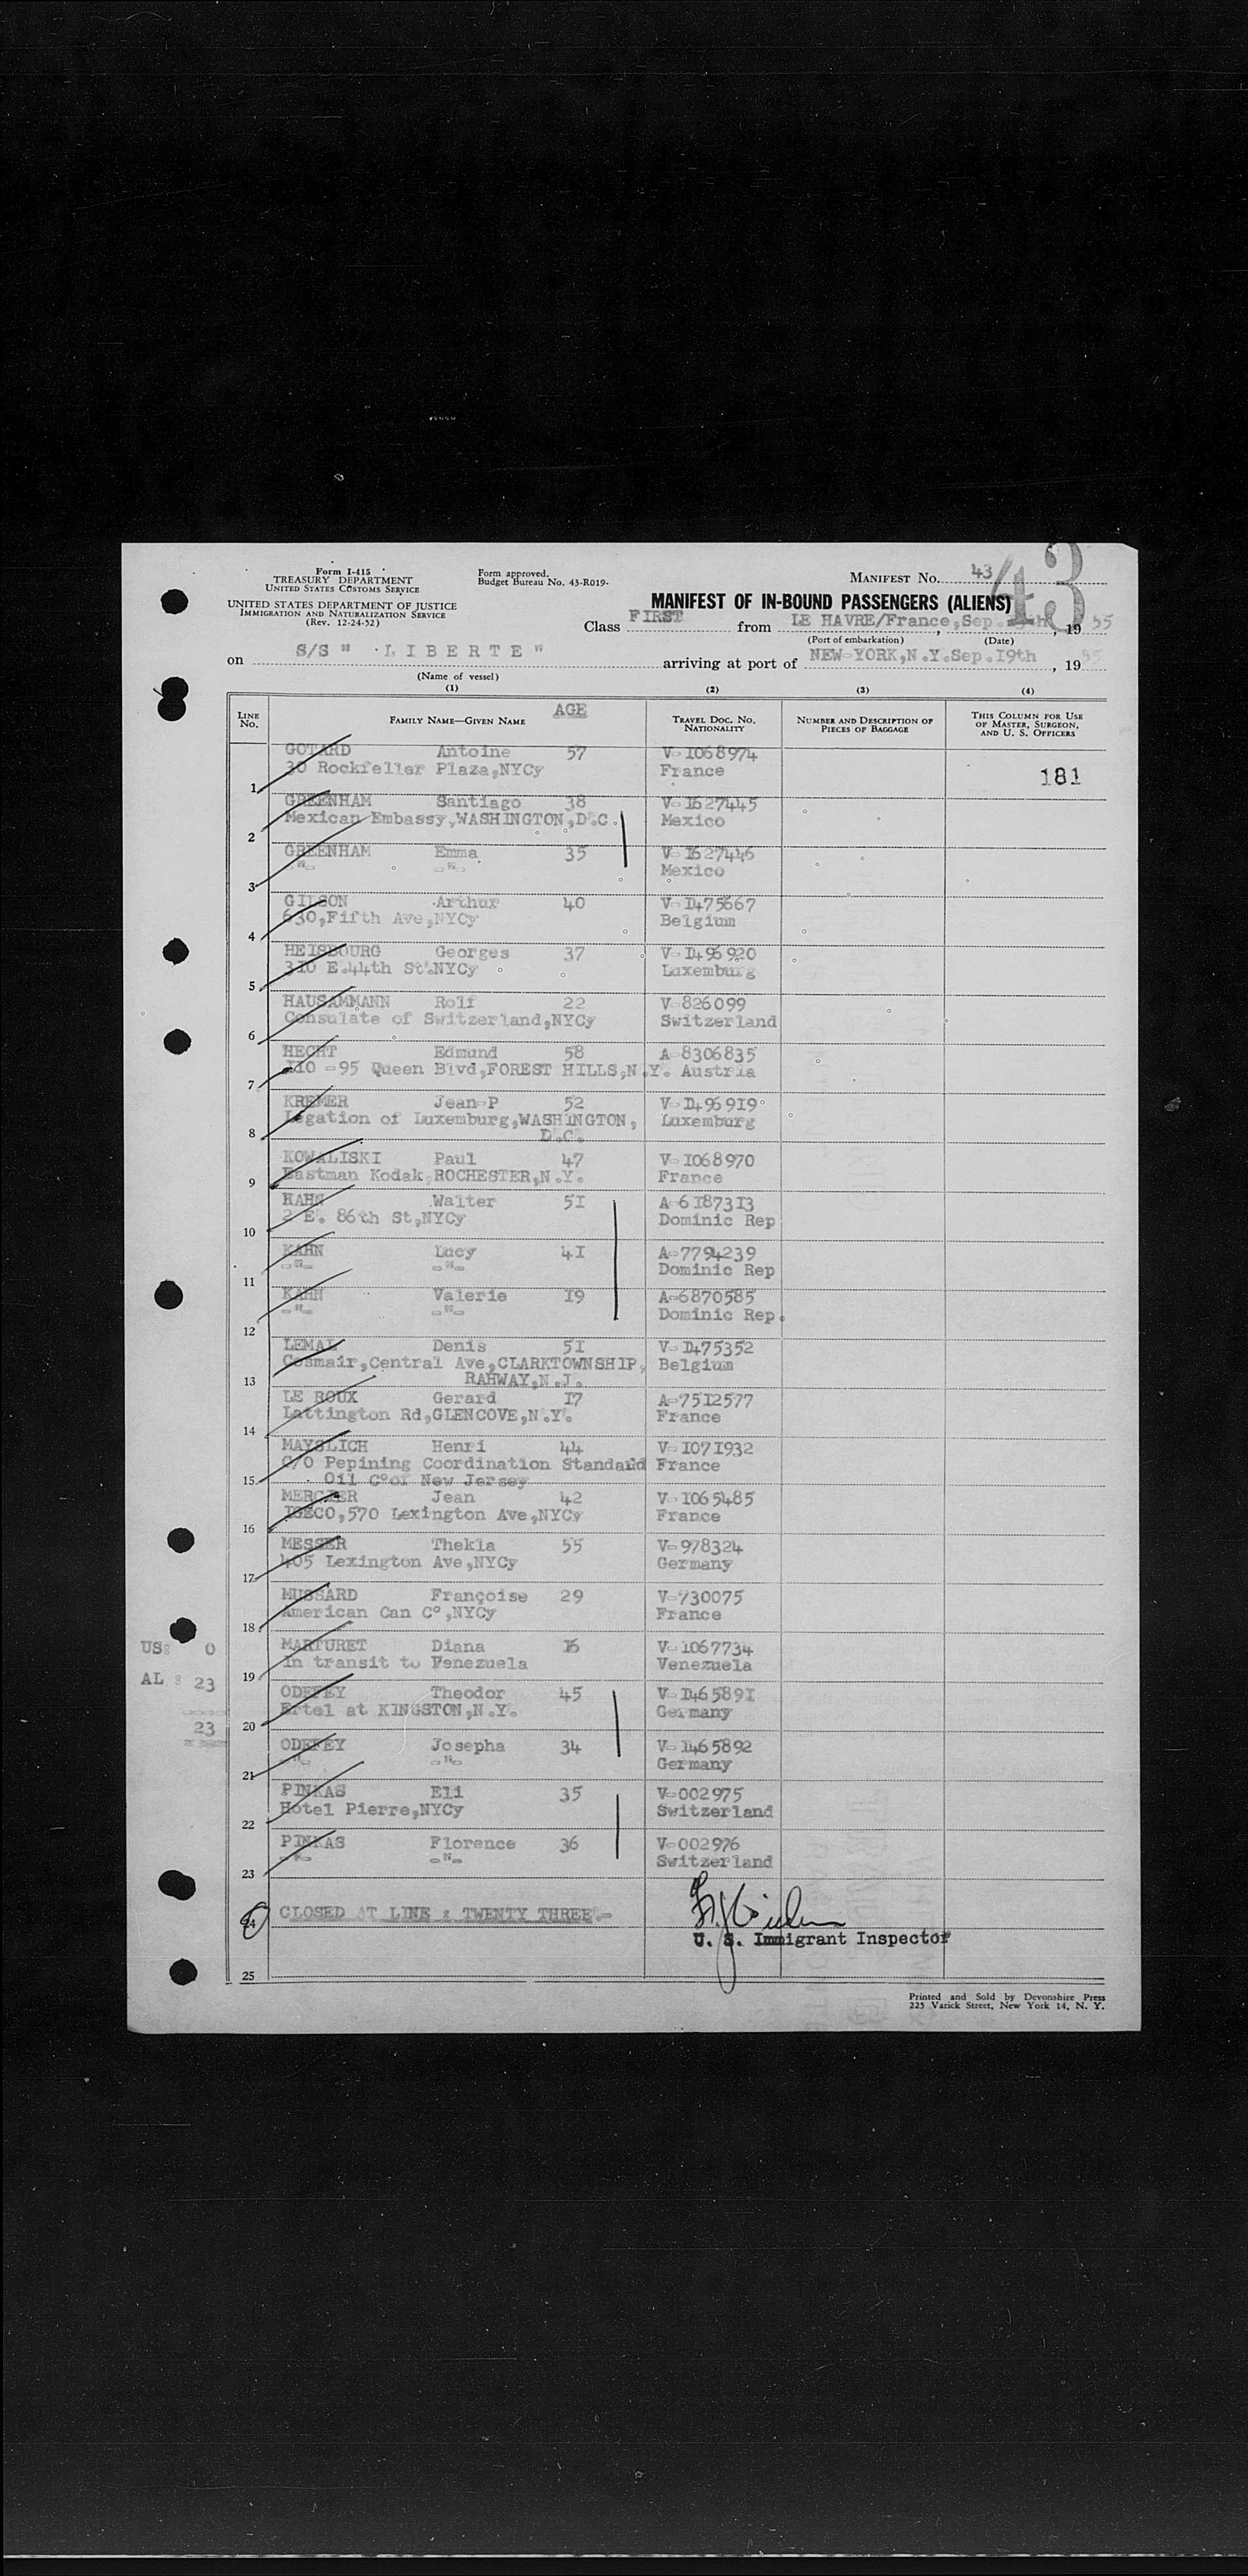 Form I-415
TREASURY DEPARTMENT
UNITED STATES CUSTOMS SERVICE
UNITED STATES DEPARTMENT OF JUSTICE
IMMIGRATION AND NATURALIZATION SERVICE
(Rev. 12-24-52)
Form approved.
Budget Bureau No. 43-R019-
MANIFEST No. 43
43
MANIFEST OF IN-BOUND PASSENGERS (ALIENS)
Class FIRST from LE HAVRE/France, Sep. , 19 55
(Port of embarkation) (Date)
on S/S " LIBERTE " arriving at port of NEW-YORK,N.Y.Sep.19th , 19 55
(Name of vessel)
(1) (2) (3) (4)
LINE No. FAMILY NAME—GIVEN NAME AGE TRAVEL DOC. No. NATIONALITY NUMBER AND DESCRIPTION OF PIECES OF BAGGAGE THIS COLUMN FOR USE OF MASTER, SURGEON, AND U. S. OFFICERS
GOTARD Antoine 57 V-1068974
1 30 Rockfeller Plaza,NYCy France 181
GREENHAM Santiago 38 V-1627445
2 Mexican Embassy,WASHINGTON,D.C. Mexico
GREENHAM Emma 35 V-1627446
3 -"- -"- Mexico
GILSON Arthur 40 V-1475667
4 630,Fifth Ave,NYCy Belgium
HEISBOURG Georges 37 V-1496920
5 310 E.44th St.NYCy Luxemburg
HAUSAMMANN Rolf 22 V-826099
6 Consulate of Switzerland,NYCy Switzerland
HECHT Edmund 58 A-8306835
7 110 -95 Queen Blvd,FOREST HILLS,N.Y. Austria
KREMER Jean-P 52 V-1496919
8 Legation of Luxemburg,WASHINGTON, Luxemburg
D.C.
KOWALISKI Paul 47 V-1068970
9 Eastman Kodak,ROCHESTER,N.Y. France
KAHN Walter 51 A-6187313
10 2 E. 86th St,NYCy Dominic Rep
KAHN Lucy 41 A-7794239
11 -"- -"- Dominic Rep
KAHN Valerie 19 A-6870585
12 -"- -"- Dominic Rep.
LEMAL Denis 51 V-1475352
Cosmair,Central Ave,CLARKTOWNSHIP, Belgium
13 RAHWAY,N.J.
LE ROUX Gerard 17 A-7512577
14 Lattington Rd,GLENCOVE,N.Y. France
MAYSLICH Henri 44 V-1071932
C/O Pepining Coordination Standard France
15 Oil C° of New Jersey
MERCIER Jean 42 V-1065485
16 IGECO,570 Lexington Ave,NYCy France
MESSER Thekla 55 V-978324
17 405 Lexington Ave,NYCy Germany
MUSSARD Françoise 29 V-730075
18 American Can C°,NYCy France
MARTURET Diana 16 V-1067734
19 In transit to Venezuela Venezuela
ODEFEY Theodor 45 V-1465891
20 Ertel at KINGSTON,N.Y. Germany
ODEFEY Josepha 34 V-1465892
21 -"- -"- Germany
PINKAS Eli 35 V-002975
22 Hotel Pierre,NYCy Switzerland
PINKAS Florence 36 V-002976
23 -"- -"- Switzerland
US: 0
AL : 23
23
24 CLOSED AT LINE : TWENTY THREE.-
U. S. Immigrant Inspector
25
Printed and Sold by Devonshire Press
225 Varick Street, New York 14, N. Y.